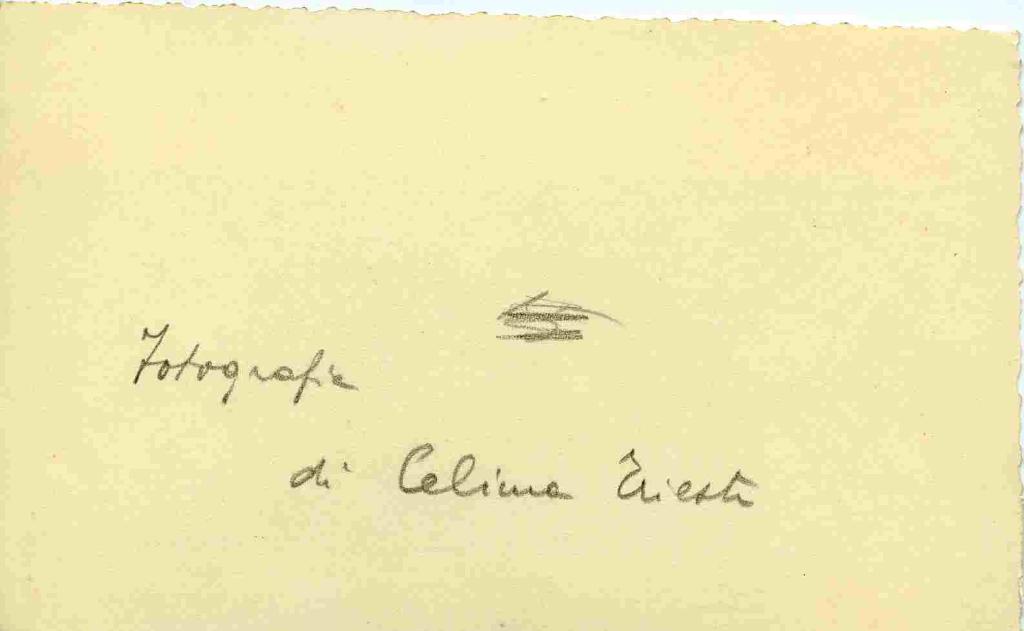 Fotografia
di Celina Trieste